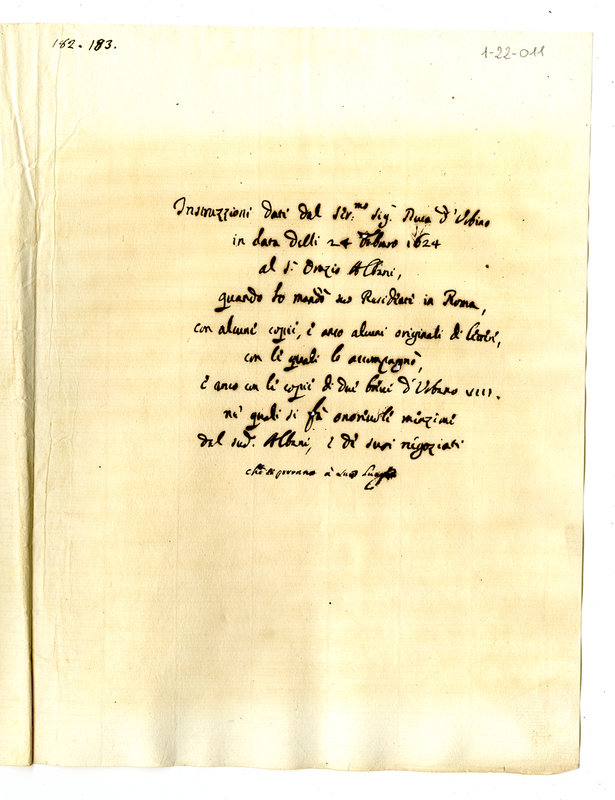 182 - 183.
1-22-011
Instruzzioni date dal Ser.mo Sig. Duca d'Urbino
in data delli 24 Febbraro 1624
al S. Orazio Albani,
quando lo mandò suo Residente in Roma,
con alcune copie, e anco alcuni originali di lettere,
con le quali lo accompagnò,
e anco con le copie di due brevi d'Urbano VIII.
ne' quali si fà onorevole menzione
del sud. Albani, e de suoi negoziati
che si porranno a suo luogho